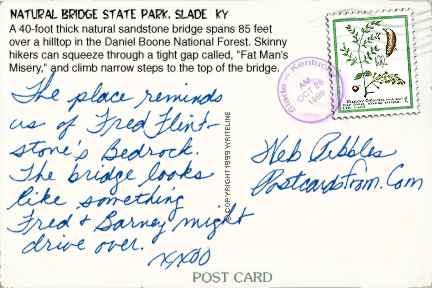 NATURAL BRIDGE STATE PARK, SLADE KY
A 40-foot thick natural sandstone bridge spans 85 feet
over a hilltop in the Daniel Boone National Forest. Skinny
hikers can squeeze through a tight gap called, "Fat Man's
Misery," and climb narrow steps to the top of the bridge.
The place reminds
us of Fred Flint-
stone's Bedrock.
The bridge looks
like something
Fred & Barney might
drive over.
XXOO
© COPYRIGHT 1999 WRITELINE
Slade Kentucky
AM
OCT
1999
Web Pibbles
PostcardsFrom.Com
POST CARD